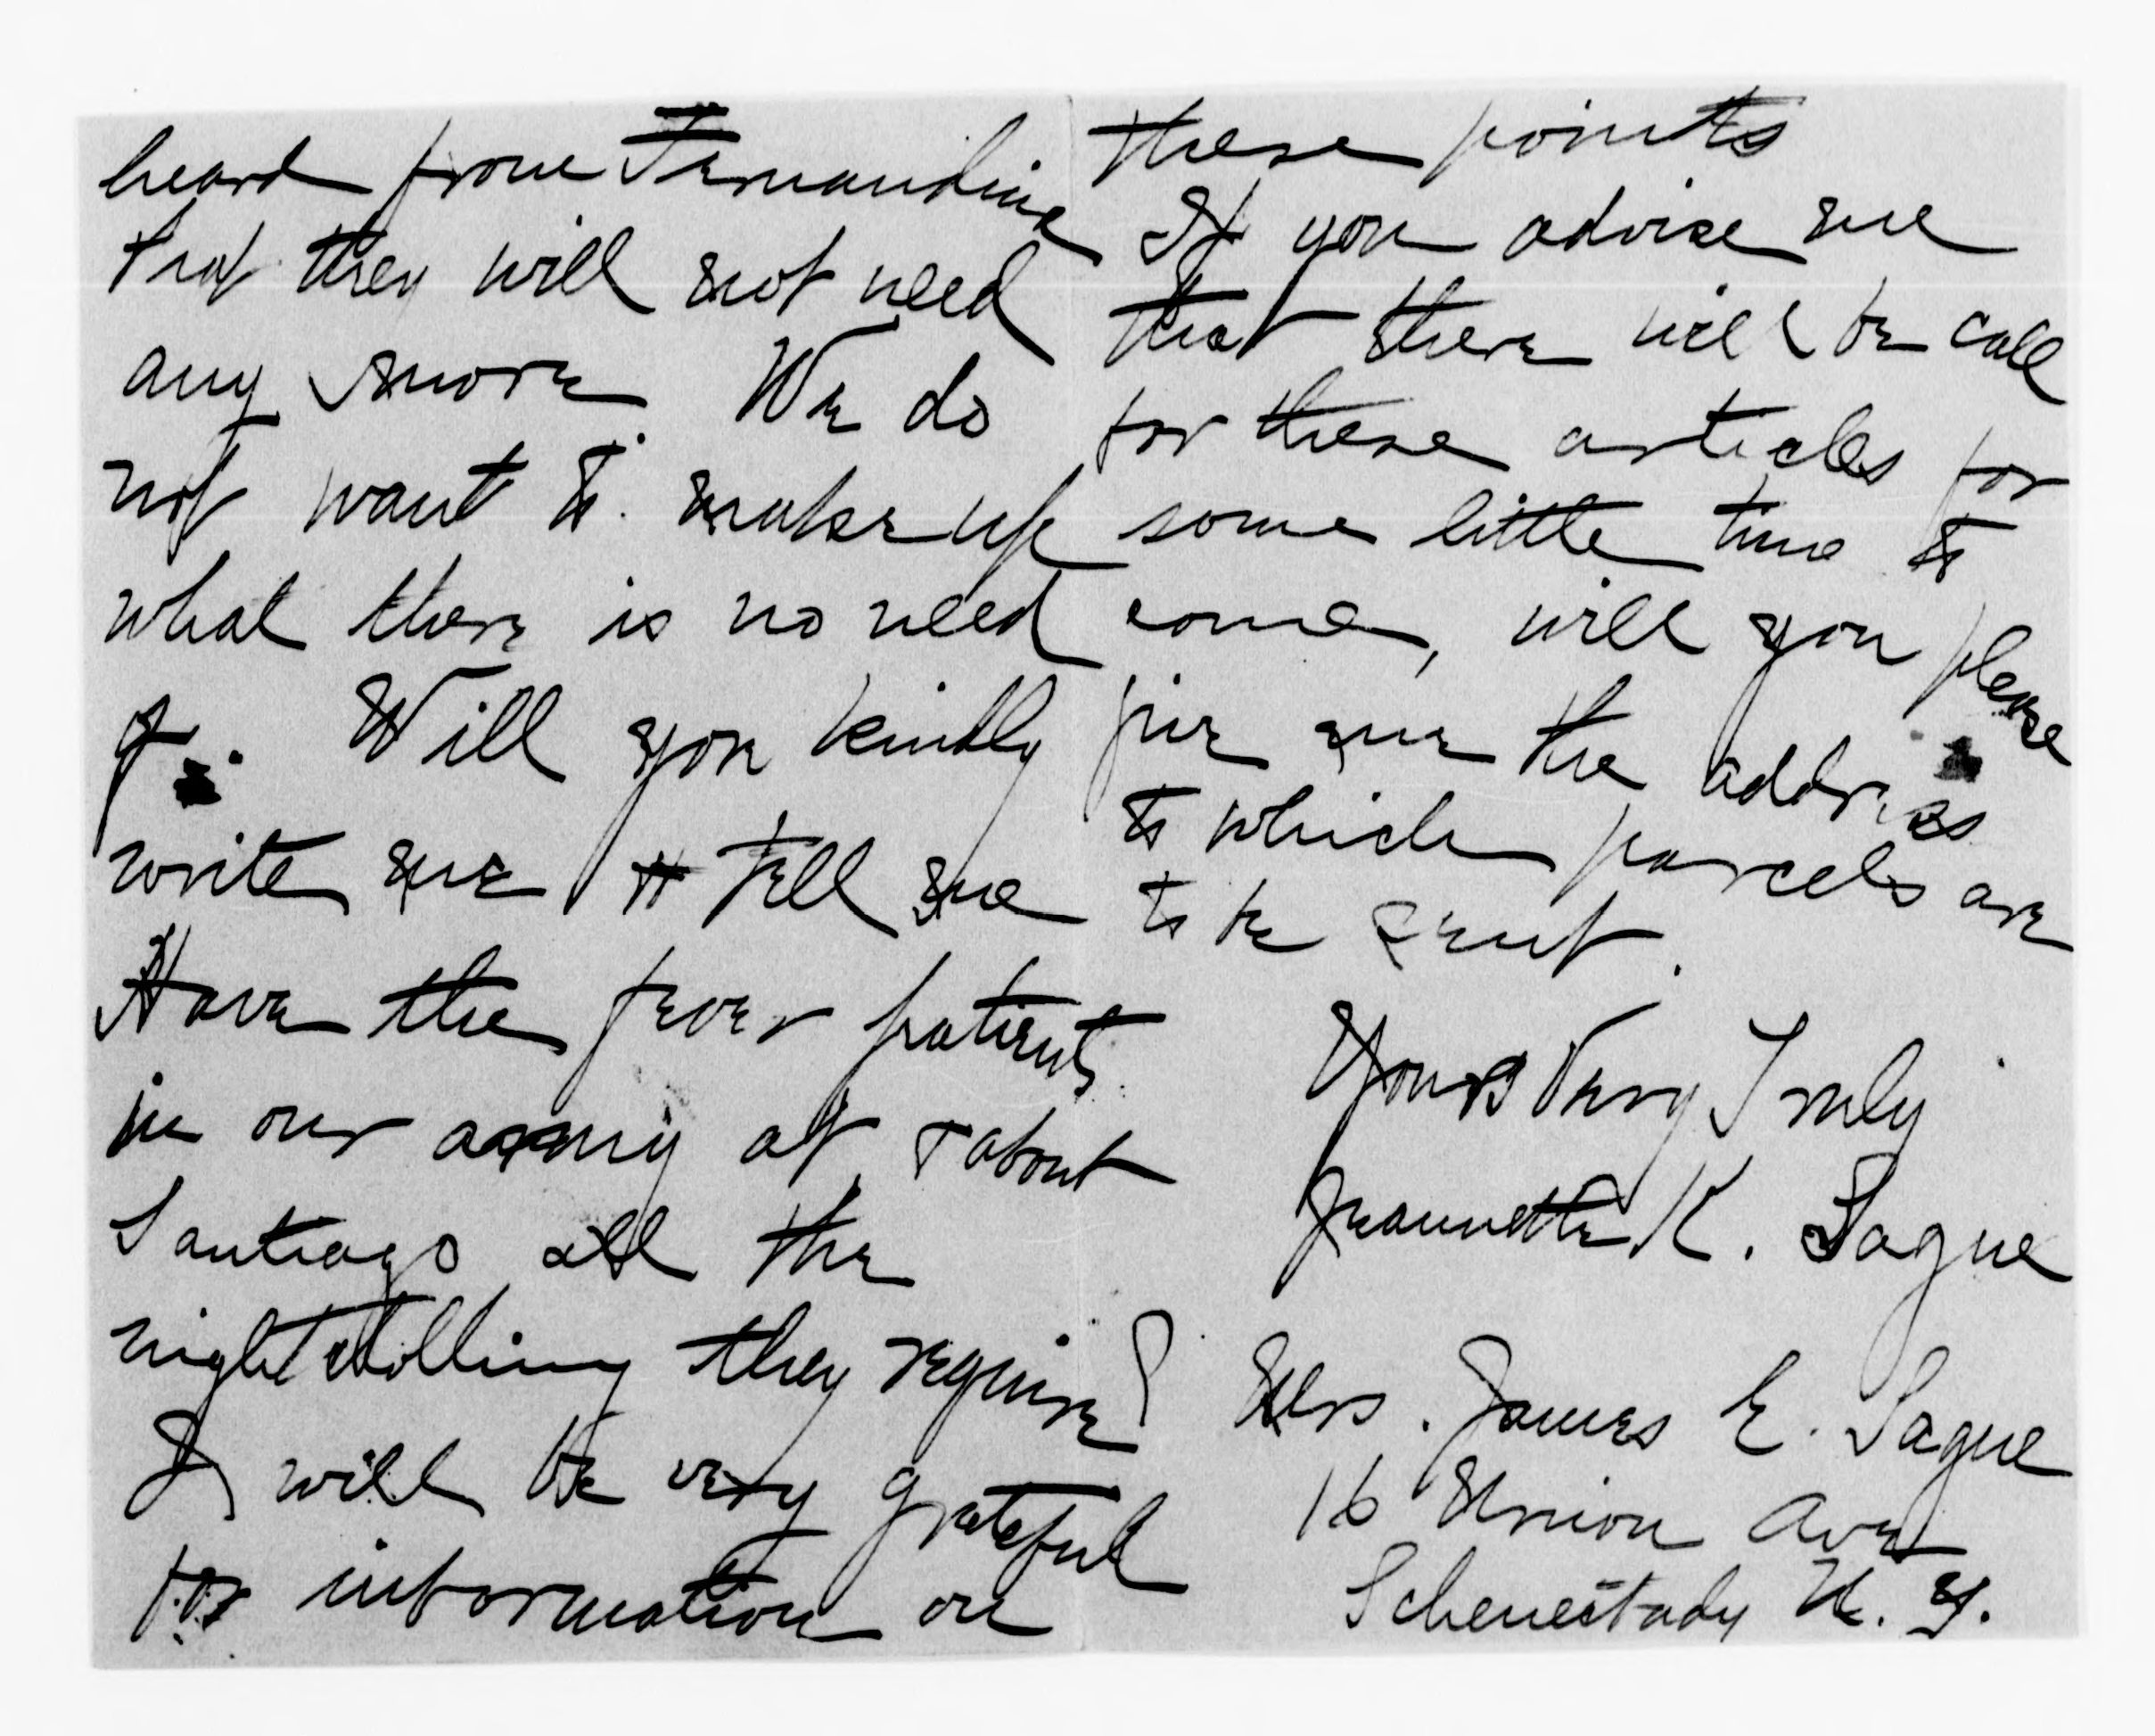 heard from Fernandina
that they will not need
any more. We do
not want to make up
what there is no need
of. Will you kindly
write me & tell me
Have the fever patients
in our army at & about
Santiago all the
night clothing they require?
I will be very grateful
for information on
these points
If you advise me
that there will be call
for these articles for
some little time to
come, will you please
give me the address
to which parcels are
to be sent.
Yours Very Truly
Jeannette K. Sague
Mrs. James E. Sague
16 Union Ave
Schenectady N. Y.